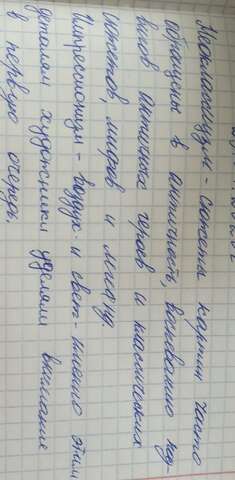 Неоклассицизм - сюжеты картин часто
обращены в античность, воспеванию под-
вигов античных героев и классических
сюжетов, мифов и легенд.
Импрессионизм - воздух и свет - именно этим
деталям художники уделяли внимание
в первую очередь.